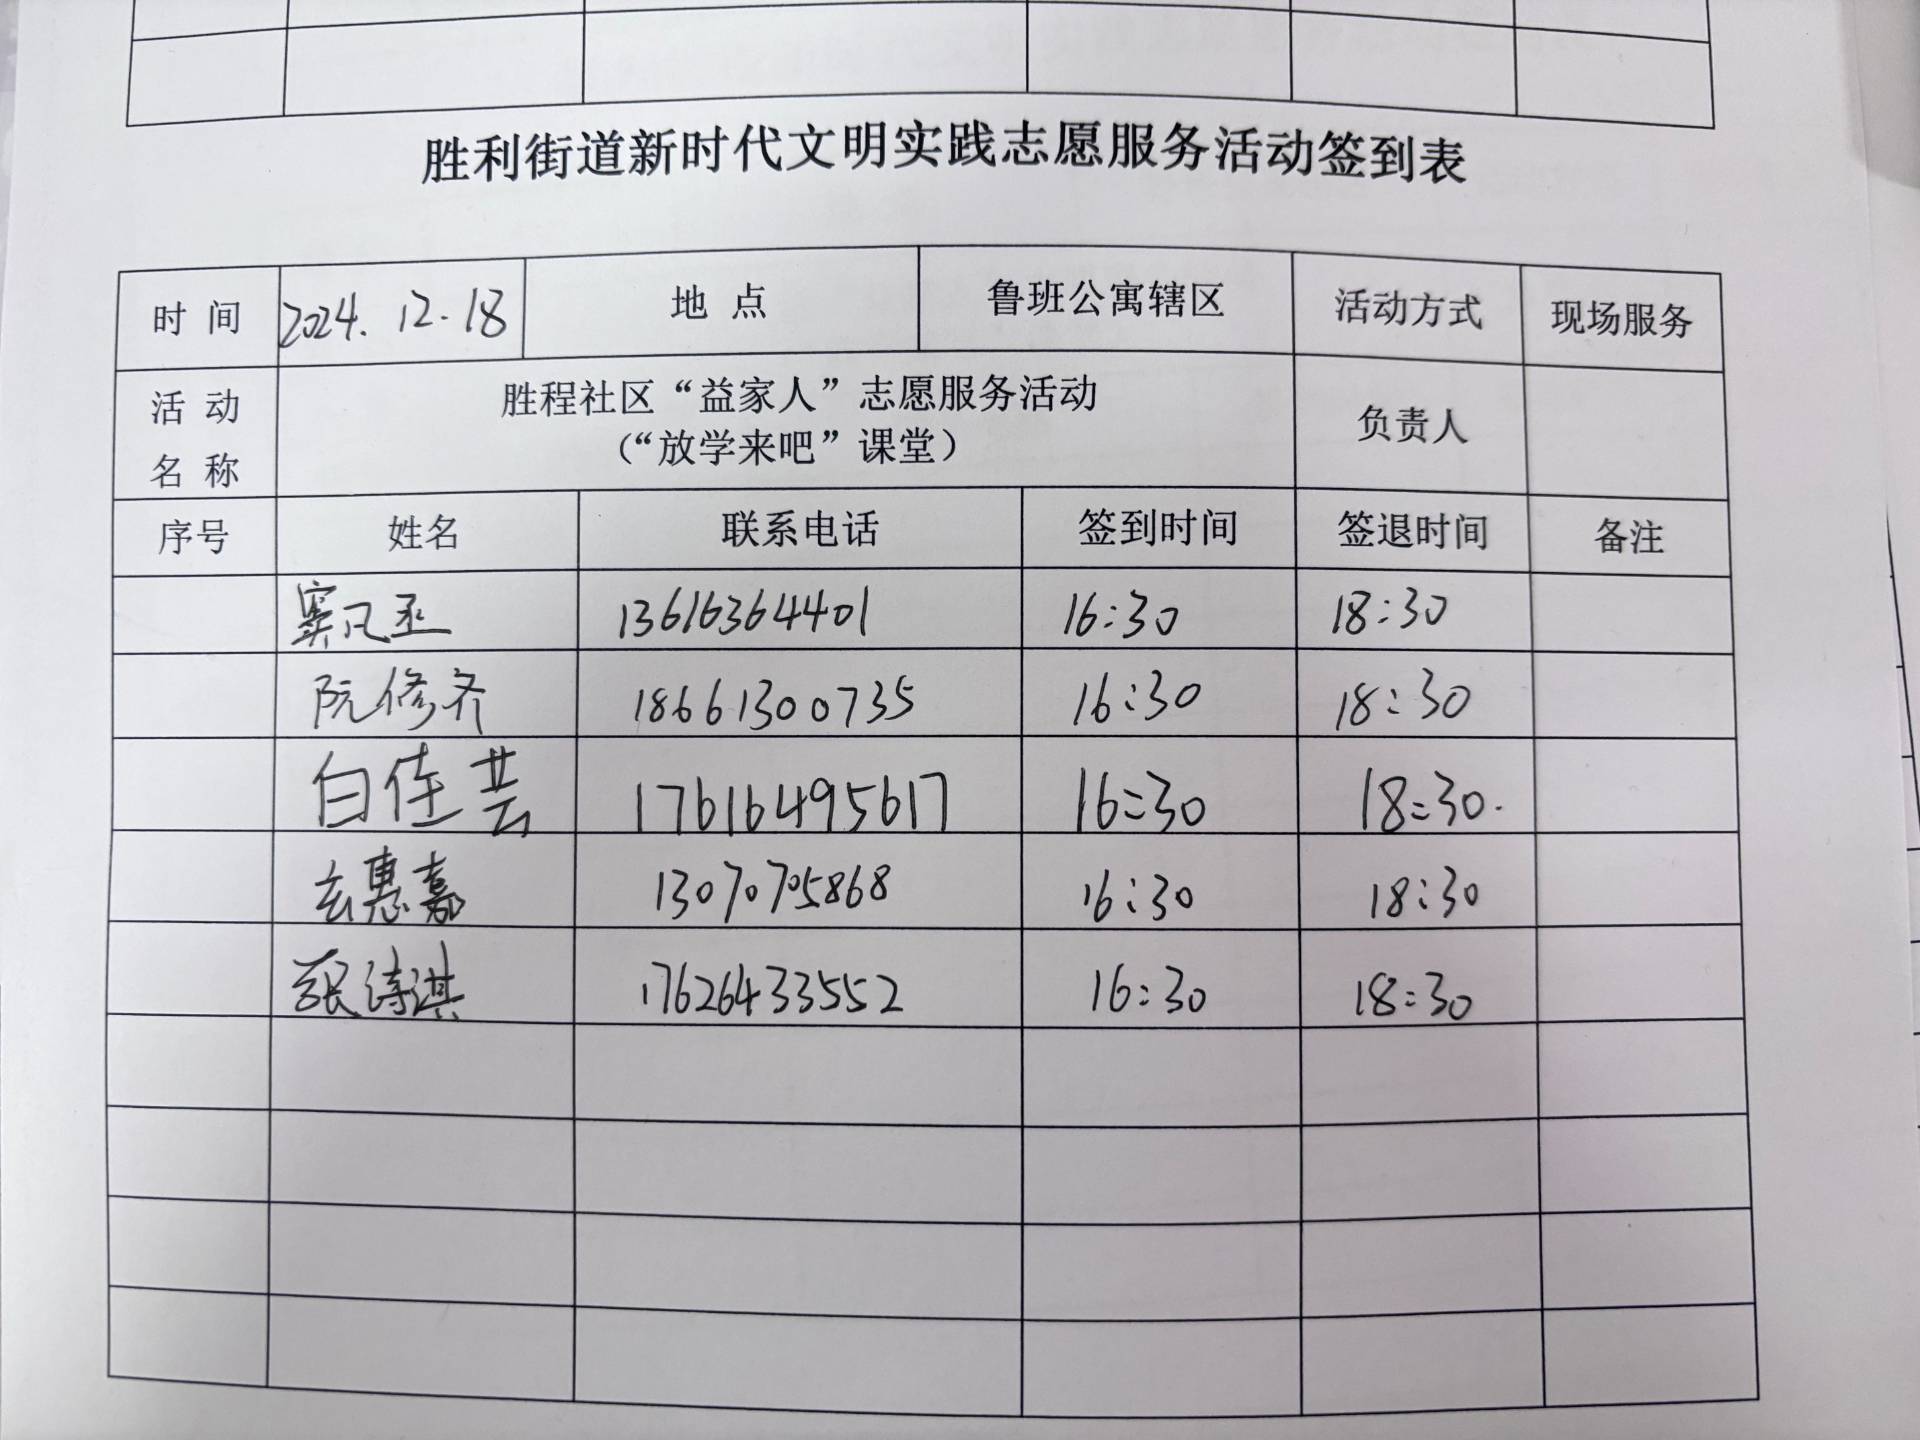 胜利街道新时代文明实践志愿服务活动签到表
时间 2024.12.18 地点 鲁班公寓辖区 活动方式 现场服务
活动名称 胜程社区“益家人”志愿服务活动 负责人
（“放学来吧”课堂）
序号 姓名 联系电话 签到时间 签退时间 备注
窦凡丞 13616364401 16:30 18:30
阮修齐 18661300735 16:30 18:30
白佳芸 17616495617 16:30 18:30.
玄惠嘉 13070705868 16:30 18:30
张涛淇 17626433552 16:30 18:30